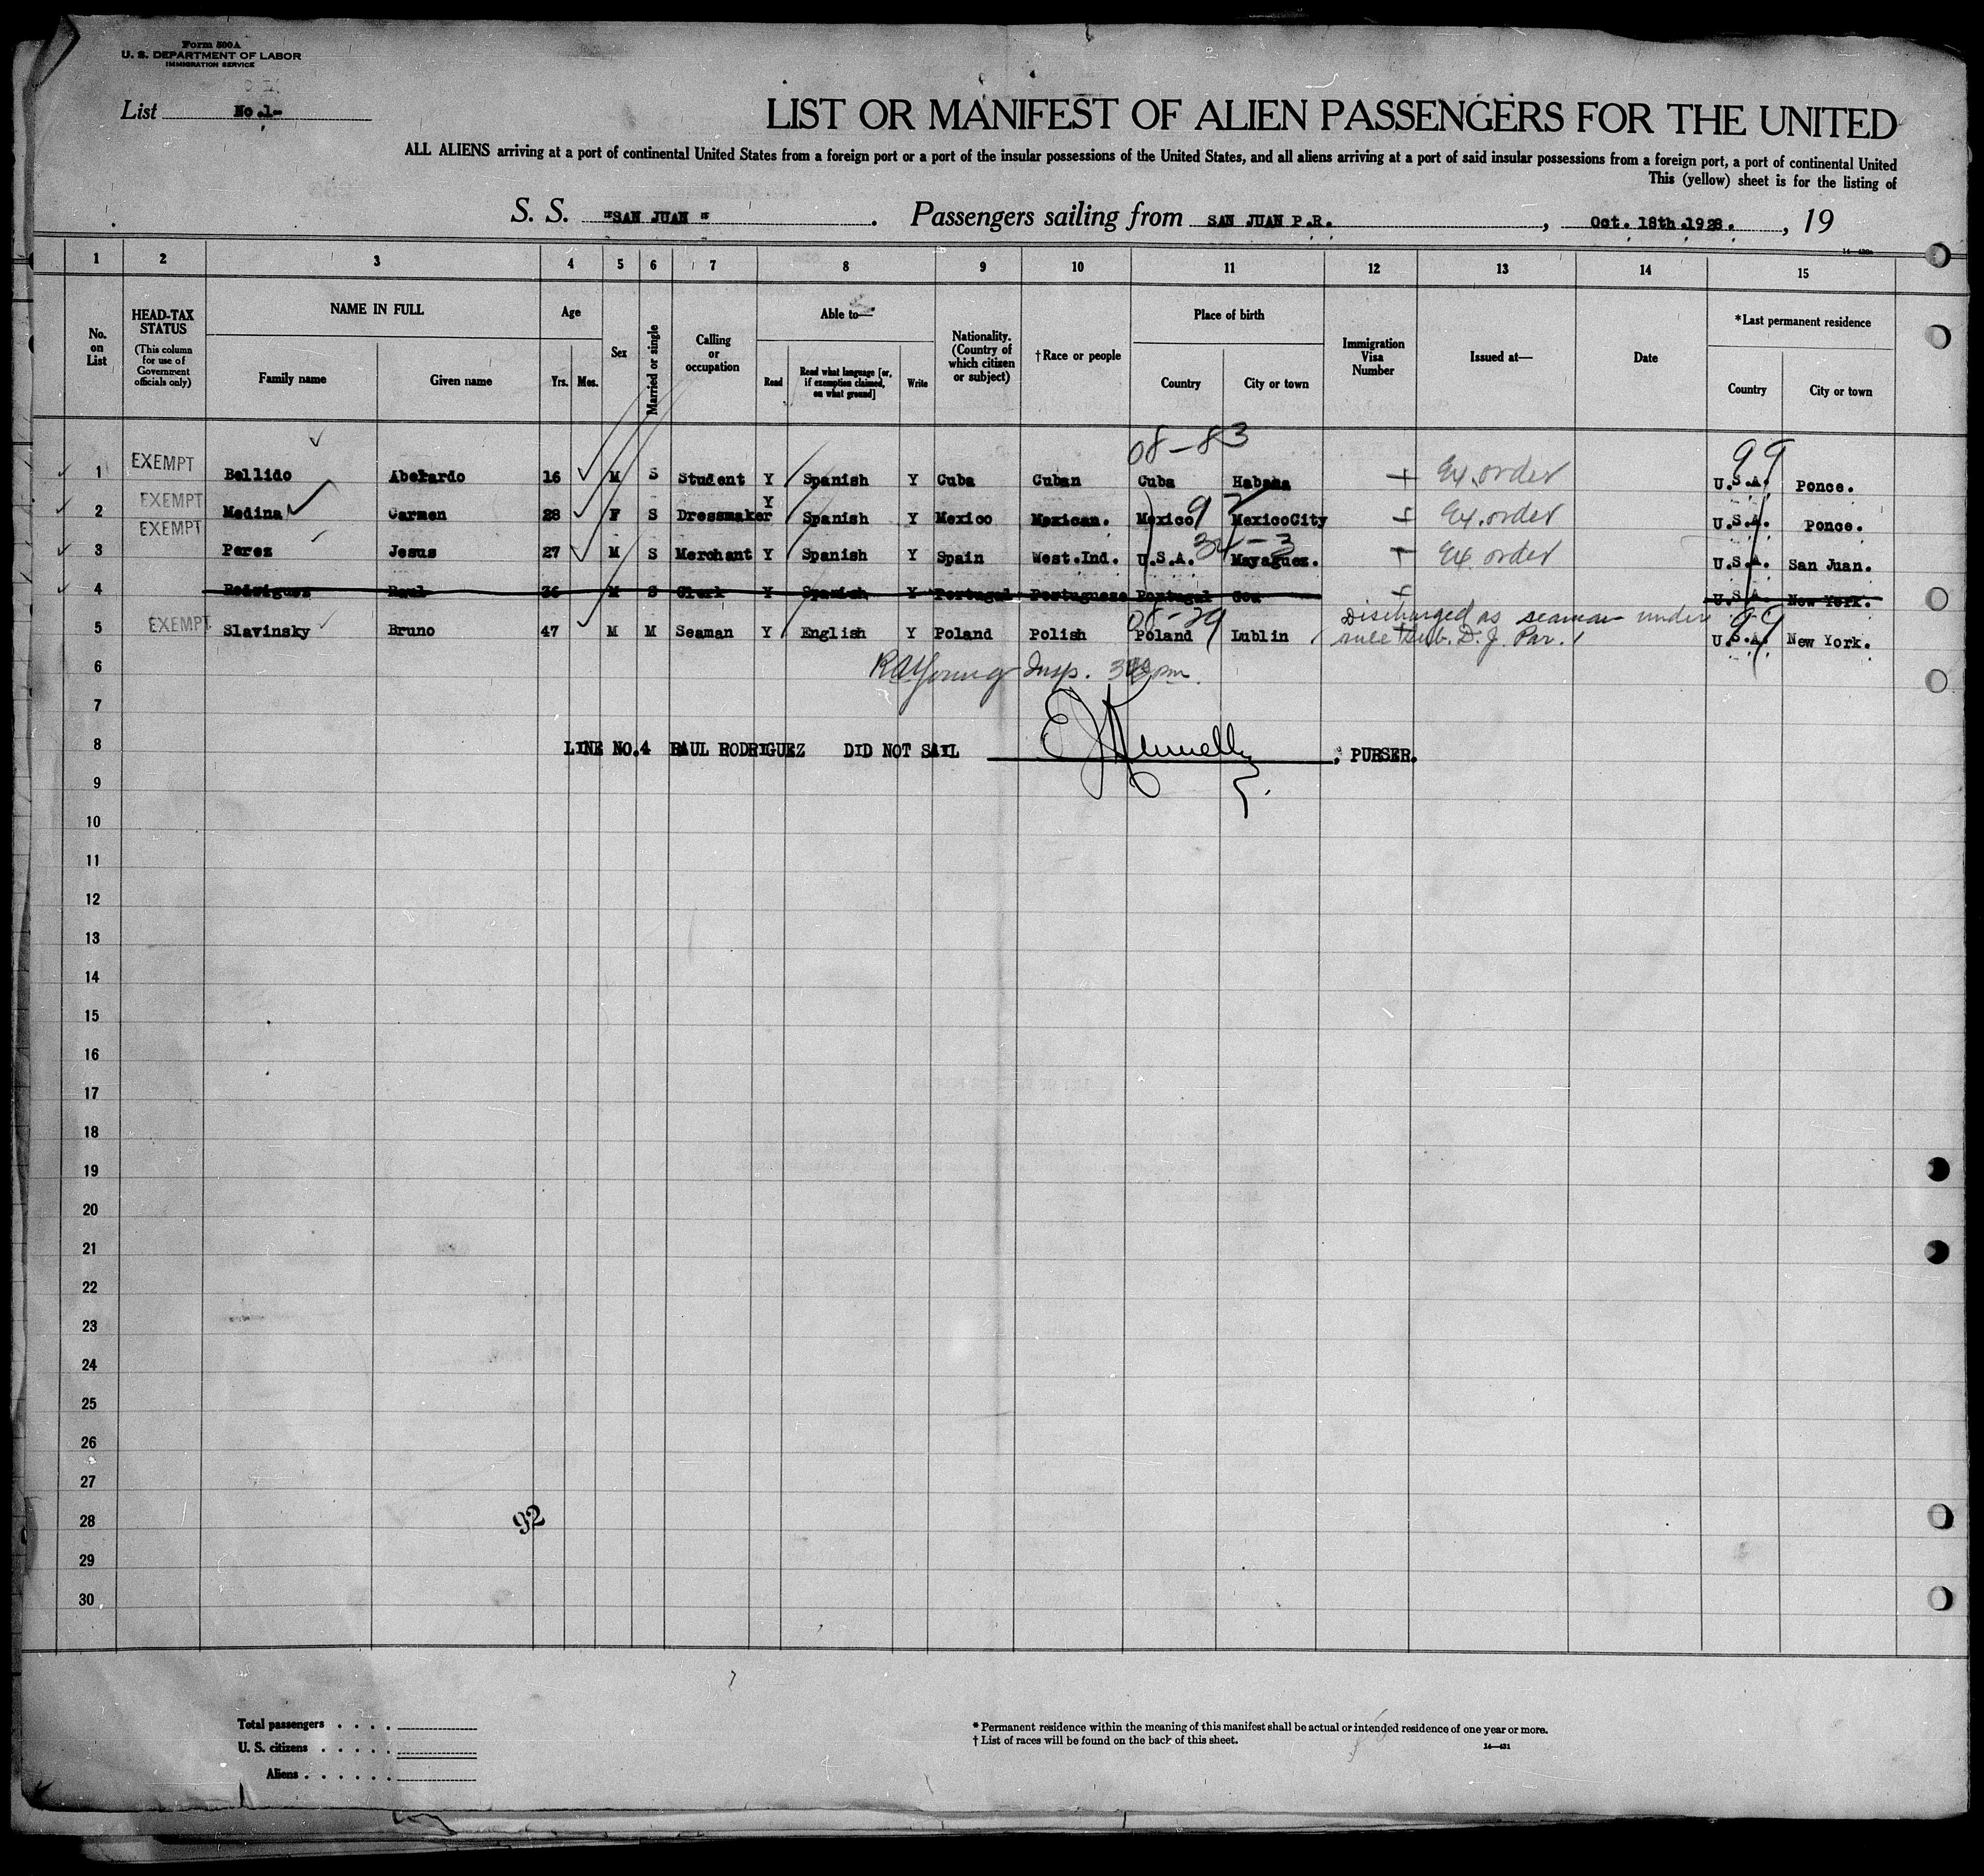 Form 500A
U. S. DEPARTMENT OF LABOR
IMMIGRATION SERVICE
List No.1-
LIST OR MANIFEST OF ALIEN PASSENGERS FOR THE UNITED
ALL ALIENS arriving at a port of continental United States from a foreign port or a port of the insular possessions of the United States, and all aliens arriving at a port of said insular possessions from a foreign port, a port of continental United
This (yellow) sheet is for the listing of
S. S. "SAN JUAN" . Passengers sailing from SAN JUAN P.R. , Oct. 18th.1928. , 19
1 2 3 4 5 6 7 8 9 10 11 12 13 14 15
No. on List
HEAD-TAX STATUS
(This column for use of Government officials only)
NAME IN FULL
Family name Given name
Age
Yrs. Mos.
Sex
Married or single
Calling or occupation
Able to—
Read
Read what language [or, if exemption claimed, on what ground]
Write
Nationality. (Country of which citizen or subject)
†Race or people
Place of birth
Country City or town
Immigration Visa Number
Issued at—
Date
*Last permanent residence
Country City or town
08-83 99
1 EXEMPT Bellido Abelardo 16 M S Student Y Spanish Y Cuba Cuban Cuba Habana Ex. order U.S.A. Ponce.
2 EXEMPT Medina Carmen 28 F S Dressmaker Y Spanish Y Mexico Mexican. Mexico MexicoCity Ex. order U.S.A. Ponce.
3 EXEMPT Perez Jesus 27 M S Merchant Y Spanish Y Spain West.Ind. U.S.A. Mayaguez. Ex. order U.S.A. San Juan.
4 Rodriguez Raul 36 M S Clerk Y Spanish Y Portugal Portuguese Portugal Goa U.S.A. New York.
08-29 Discharged as seaman under 99
5 EXEMPT Slavinsky Bruno 47 M M Seaman Y English Y Poland Polish Poland Lublin rule Sub. D. J. Par. 1 U.S.A. New York.
6 Young Insp. pm
7
8 LINE NO.4 RAUL RODRIGUEZ DID NOT SAIL , PURSER.
9
10
11
12
13
14
15
16
17
18
19
20
21
22
23
24
25
26
27
28 92
29
30
Total passengers . . . .
U. S. citizens . . . . .
Aliens . . . . . .
* Permanent residence within the meaning of this manifest shall be actual or intended residence of one year or more.
† List of races will be found on the back of this sheet.
14—421